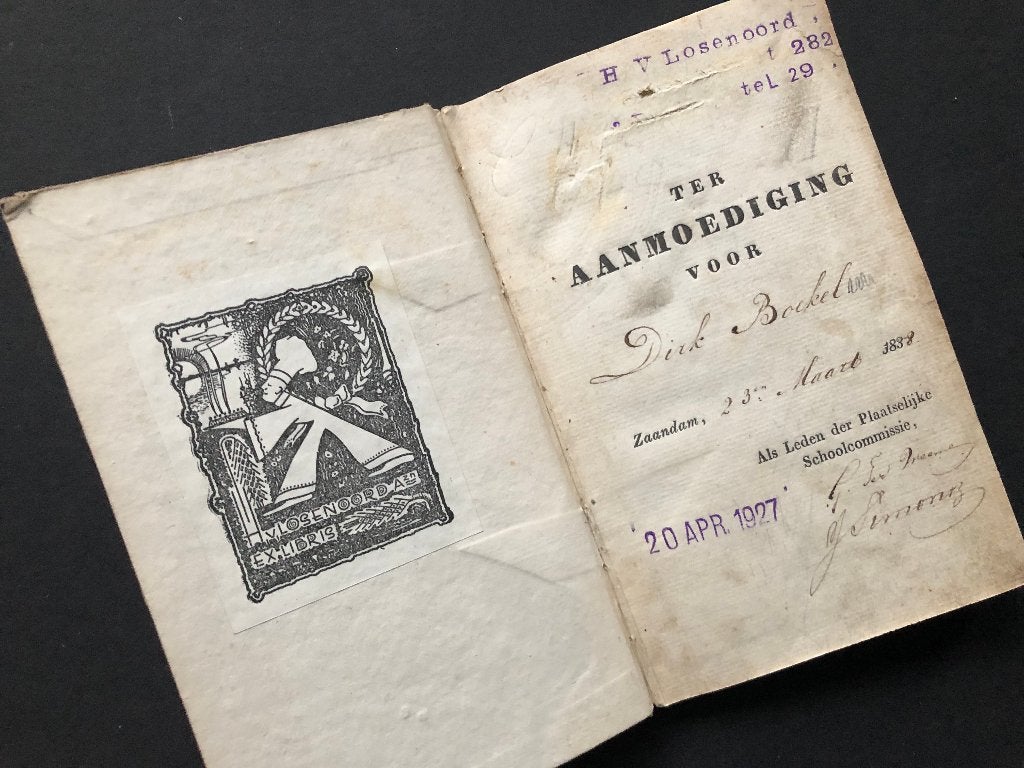 H V LOSENOORD AZN
EX-LIBRIS
H V Losenoord,
t 282
tel 29.
TER
AANMOEDIGING
VOOR
Dirk Boekel
Zaandam, 23en Maart 1838
Als Leden der Plaatselijke
Schoolcommissie,
J Simonsz
20 APR. 1927